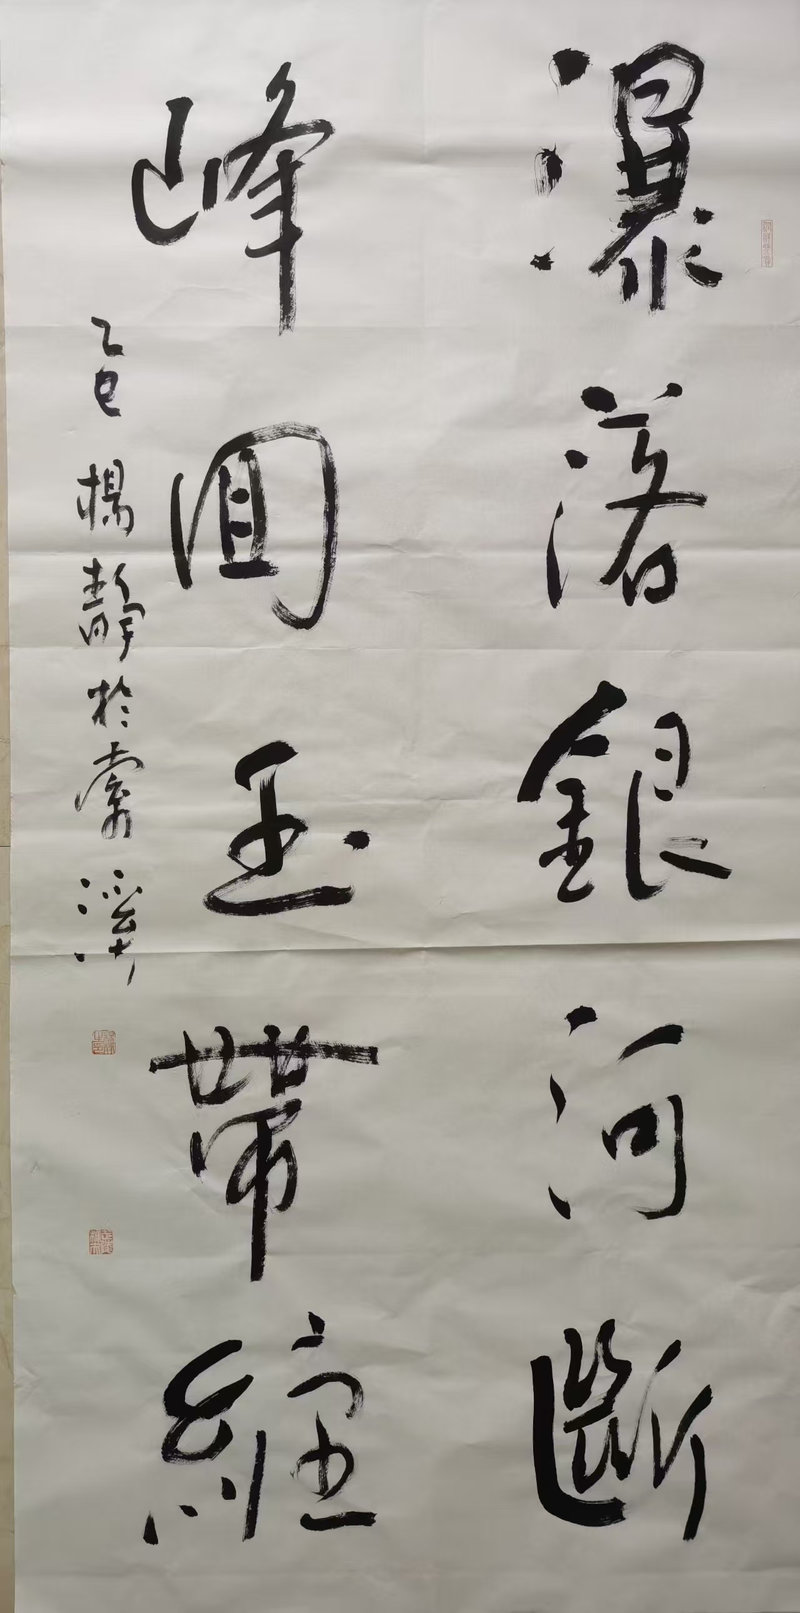 瀑落銀河斷
峰回玉帶纏
乙巳 楊靜於索溪